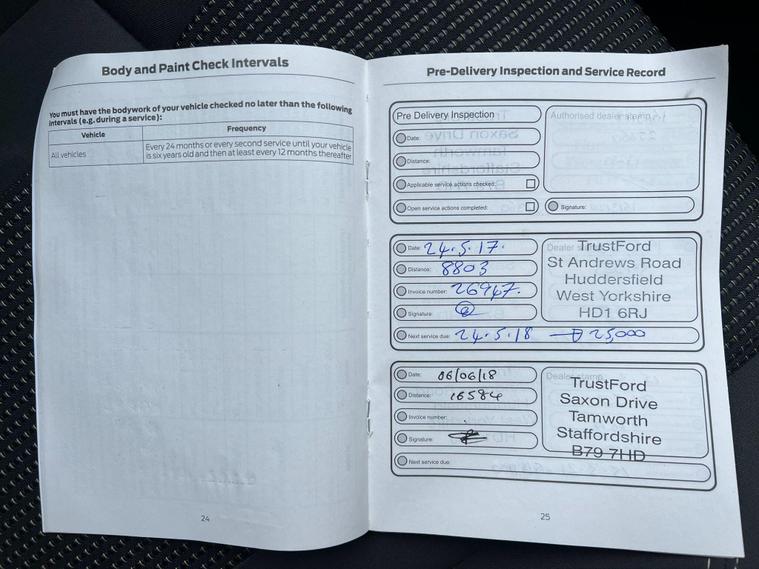 Body and Paint Check Intervals
You must have the bodywork of your vehicle checked no later than the following
intervals (e.g. during a service):
Vehicle Frequency
All vehicles Every 24 months or every second service until your vehicle
is six years old and then at least every 12 months thereafter
24
Pre-Delivery Inspection and Service Record
Pre Delivery Inspection Authorised dealer stamp
Date:
Distance:
Applicable service actions checked:
Open service actions completed: Signature:
Date: 24.5.17.
Distance: 8803
Invoice number: 26947.
Signature:
Next service due: 24.5.18 → 25,000
Dealer stamp
TrustFord
St Andrews Road
Huddersfield
West Yorkshire
HD1 6RJ
Date: 06/06/18
Distance: 16584
Invoice number:
Signature:
Next service due:
Dealer stamp
TrustFord
Saxon Drive
Tamworth
Staffordshire
B79 7HD
25